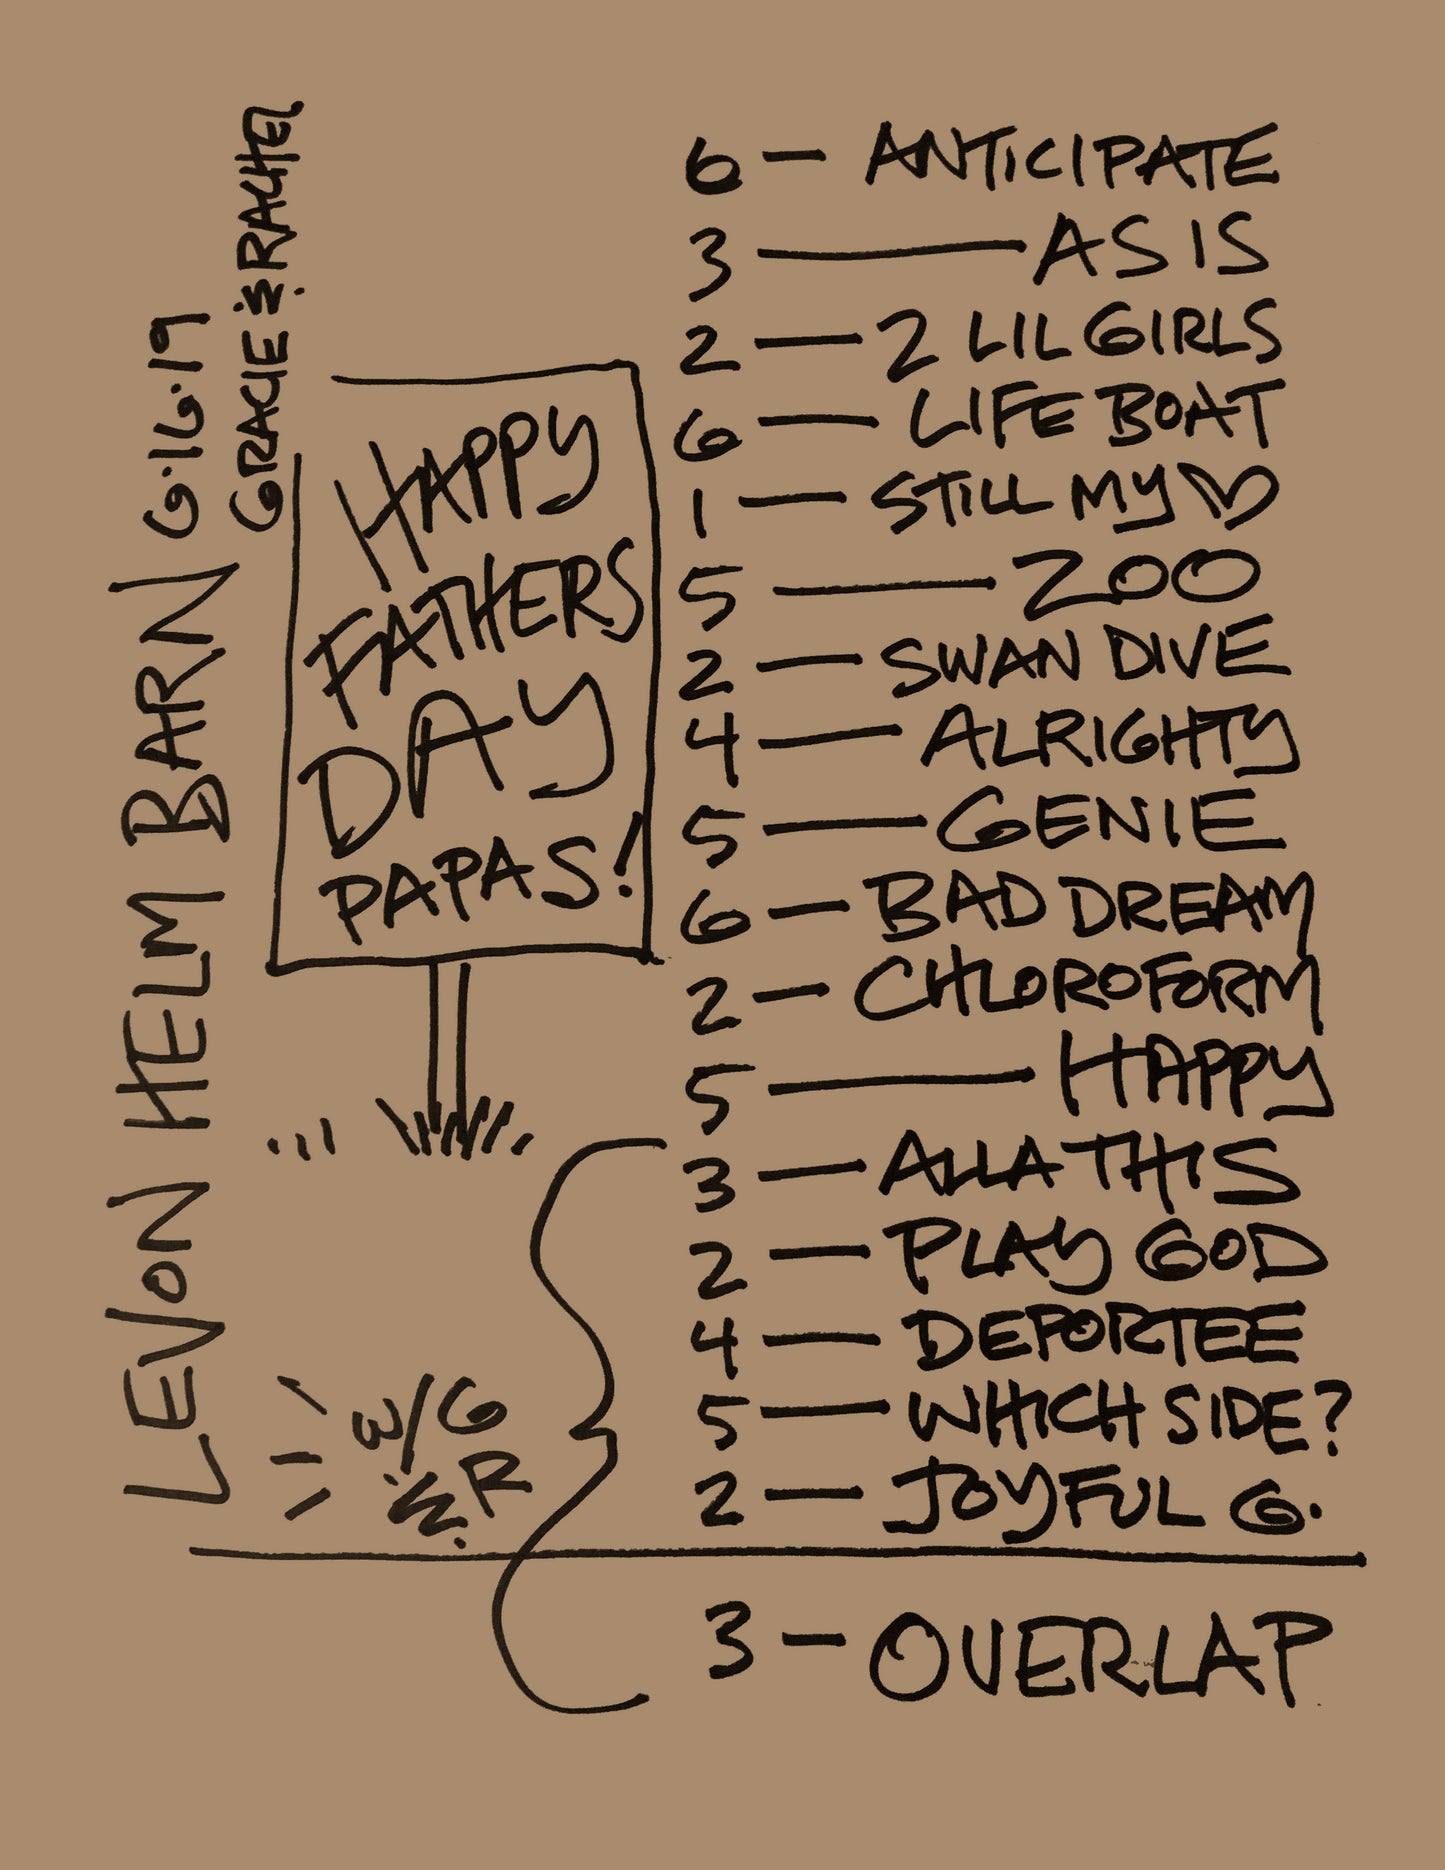 LEVON HELM BARN 6.16.19
GRACIE & RACHEL
HAPPY
FATHERS
DAY
PAPAS!
6 — ANTICIPATE
3 — AS IS
2 — 2 LIL GIRLS
6 — LIFE BOAT
1 — STILL MY ♡
5 — ZOO
2 — SWAN DIVE
4 — ALRIGHTY
5 — GENIE
6 — BAD DREAM
2 — CHLOROFORM
5 — HAPPY
3 — ALLA THIS
2 — PLAY GOD
4 — DEPORTEE
5 — WHICH SIDE?
2 — JOYFUL G.
W/G
& R
3 — OVERLAP